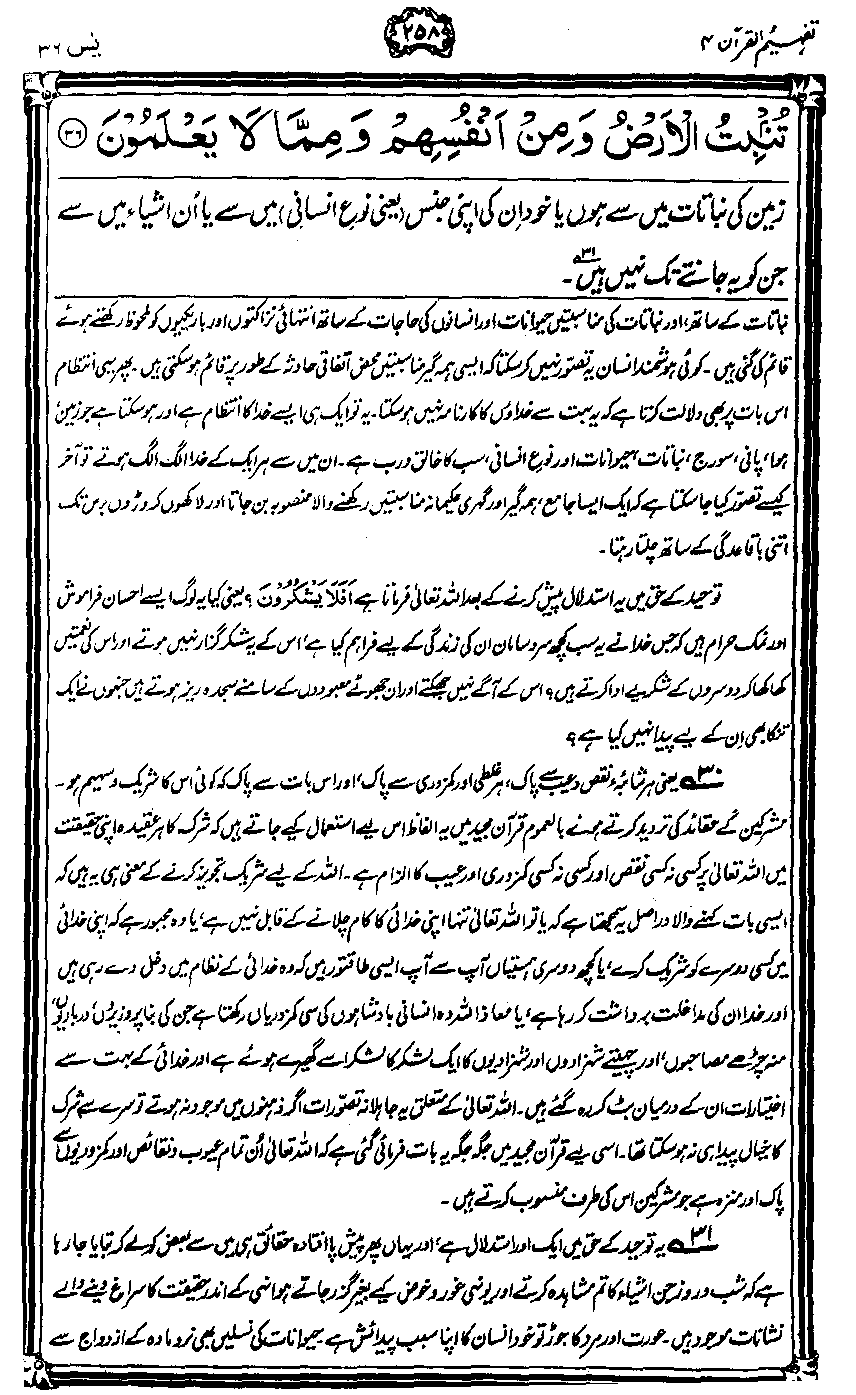 تفہیم القرآن ۴
۲۵۸
یٰس ۳۶
تُنْۢبِتُ الْاَرْضُ وَمِنْ اَنْفُسِهِمْ وَمِمَّا لَا يَعْلَمُوْنَ ۝۳۶
زمین کی نباتات میں سے ہوں یا خود اِن کی اپنی جنس (یعنی نوعِ انسانی) میں سے یا اُن اشیاء میں سے
جن کو یہ جانتے تک نہیں ہیں۳۱۔
نباتات کے ساتھ، اور نباتات کی مناسبتیں حیوانات اور انسانوں کی حاجات کے ساتھ انتہائی نزاکتوں اور باریکیوں کو ملحوظ رکھتے ہوئے
قائم کی گئی ہیں۔ کوئی ہوشمند انسان یہ تصور نہیں کر سکتا کہ ایسی ہمہ گیر مناسبتیں محض اتفاقی حادثہ کے طور پر قائم ہو سکتی ہیں۔ پھر یہی انتظام
اس بات پر بھی دلالت کرتا ہے کہ یہ بہت سے خداؤں کا کارنامہ نہیں ہو سکتا۔ یہ تو ایک ہی ایسے خدا کا انتظام ہے اور ہو سکتا ہے جو زمین،
ہوا، پانی، سورج، نباتات، حیوانات اور نوعِ انسانی، سب کا خالق و رب ہے۔ ان میں سے ہر ایک کے خدا الگ الگ ہوتے تو آخر
کیسے تصور کیا جا سکتا ہے کہ ایک ایسا جامع، ہمہ گیر اور گہری حکیمانہ مناسبتیں رکھنے والا منصوبہ بن جاتا اور لاکھوں کروڑوں برس تک
اتنی باقاعدگی کے ساتھ چلتا رہتا۔
توحید کے حق میں یہ استدلال پیش کرنے کے بعد اللہ تعالیٰ فرماتا ہے اَفَلَا یَشْکُرُوْنَ؟ یعنی کیا یہ لوگ ایسے احسان فراموش
اور نمک حرام ہیں کہ جس خدا نے یہ سب کچھ سروسامان ان کی زندگی کے لیے فراہم کیا ہے، اس کے یہ شکر گزار نہیں ہوتے اور اس کی نعمتیں
کھا کھا کر دوسروں کے شکریے ادا کرتے ہیں؟ اس کے آگے نہیں جھکتے اور ان جھوٹے معبودوں کے سامنے سجدہ ریز ہوتے ہیں جنہوں نے ایک
تنکا بھی اِن کے لیے پیدا نہیں کیا ہے؟
۳۰ یعنی ہر شائبۂ نقص و عیب سے پاک، ہر غلطی اور کمزوری سے پاک، اور اس بات سے پاک کہ کوئی اس کا شریک و سہیم ہو۔
مشرکین کے عقائد کی تردید کرتے ہوئے بالعموم قرآن مجید میں یہ الفاظ اس لیے استعمال کیے جاتے ہیں کہ شرک کا ہر عقیدہ اپنی حقیقت
میں اللہ تعالیٰ پر کسی نہ کسی نقص اور کسی نہ کسی کمزوری اور عیب کا الزام ہے۔ اللہ کے لیے شریک تجویز کرنے کے معنی ہی یہ ہیں کہ
ایسی بات کہنے والا دراصل یہ سمجھتا ہے کہ یا تو اللہ تعالیٰ تنہا اپنی خدائی کا کام چلانے کے قابل نہیں ہے، یا وہ مجبور ہے کہ اپنی خدائی
میں کسی دوسرے کو شریک کرے، یا کچھ دوسری ہستیاں آپ سے آپ ایسی طاقتور ہیں کہ وہ خدائی کے نظام میں دخل دے رہی ہیں
اور خدا ان کی مداخلت برداشت کر رہا ہے، یا معاذ اللہ وہ انسانی بادشاہوں کی سی کمزوریاں رکھتا ہے جن کی بنا پر وزیروں، درباریوں،
منہ چڑھے مصاحبوں، اور چہیتے شہزادوں اور شہزادیوں کا ایک لشکر کا لشکر اسے گھیرے ہوئے ہے اور خدائی کے بہت سے
اختیارات ان کے درمیان بٹ کر رہ گئے ہیں۔ اللہ تعالیٰ کے متعلق یہ جاہلانہ تصورات اگر ذہنوں میں موجود نہ ہوتے تو سرے سے شرک
کا خیال پیدا ہی نہ ہو سکتا تھا۔ اسی لیے قرآن مجید میں جگہ جگہ یہ بات فرمائی گئی ہے کہ اللہ تعالیٰ اُن تمام عیوب و نقائص اور کمزوریوں سے
پاک اور منزہ ہے جو مشرکین اس کی طرف منسوب کرتے ہیں۔
۳۱ یہ توحید کے حق میں ایک اور استدلال ہے، اور یہاں پھر پیش پا افتادہ حقائق ہی میں سے بعض کو لے کر بتایا جا رہا
ہے کہ شب و روز جن اشیاء کا تم مشاہدہ کرتے اور یونہی غور و خوض کیے بغیر گزر جاتے ہو انہی کے اندر حقیقت کا سراغ دینے والے
نشانات موجود ہیں۔ عورت اور مرد کا جوڑ تو خود انسان کا اپنا سبب پیدائش ہے۔ حیوانات کی نسلیں بھی نر و مادہ کے ازدواج سے